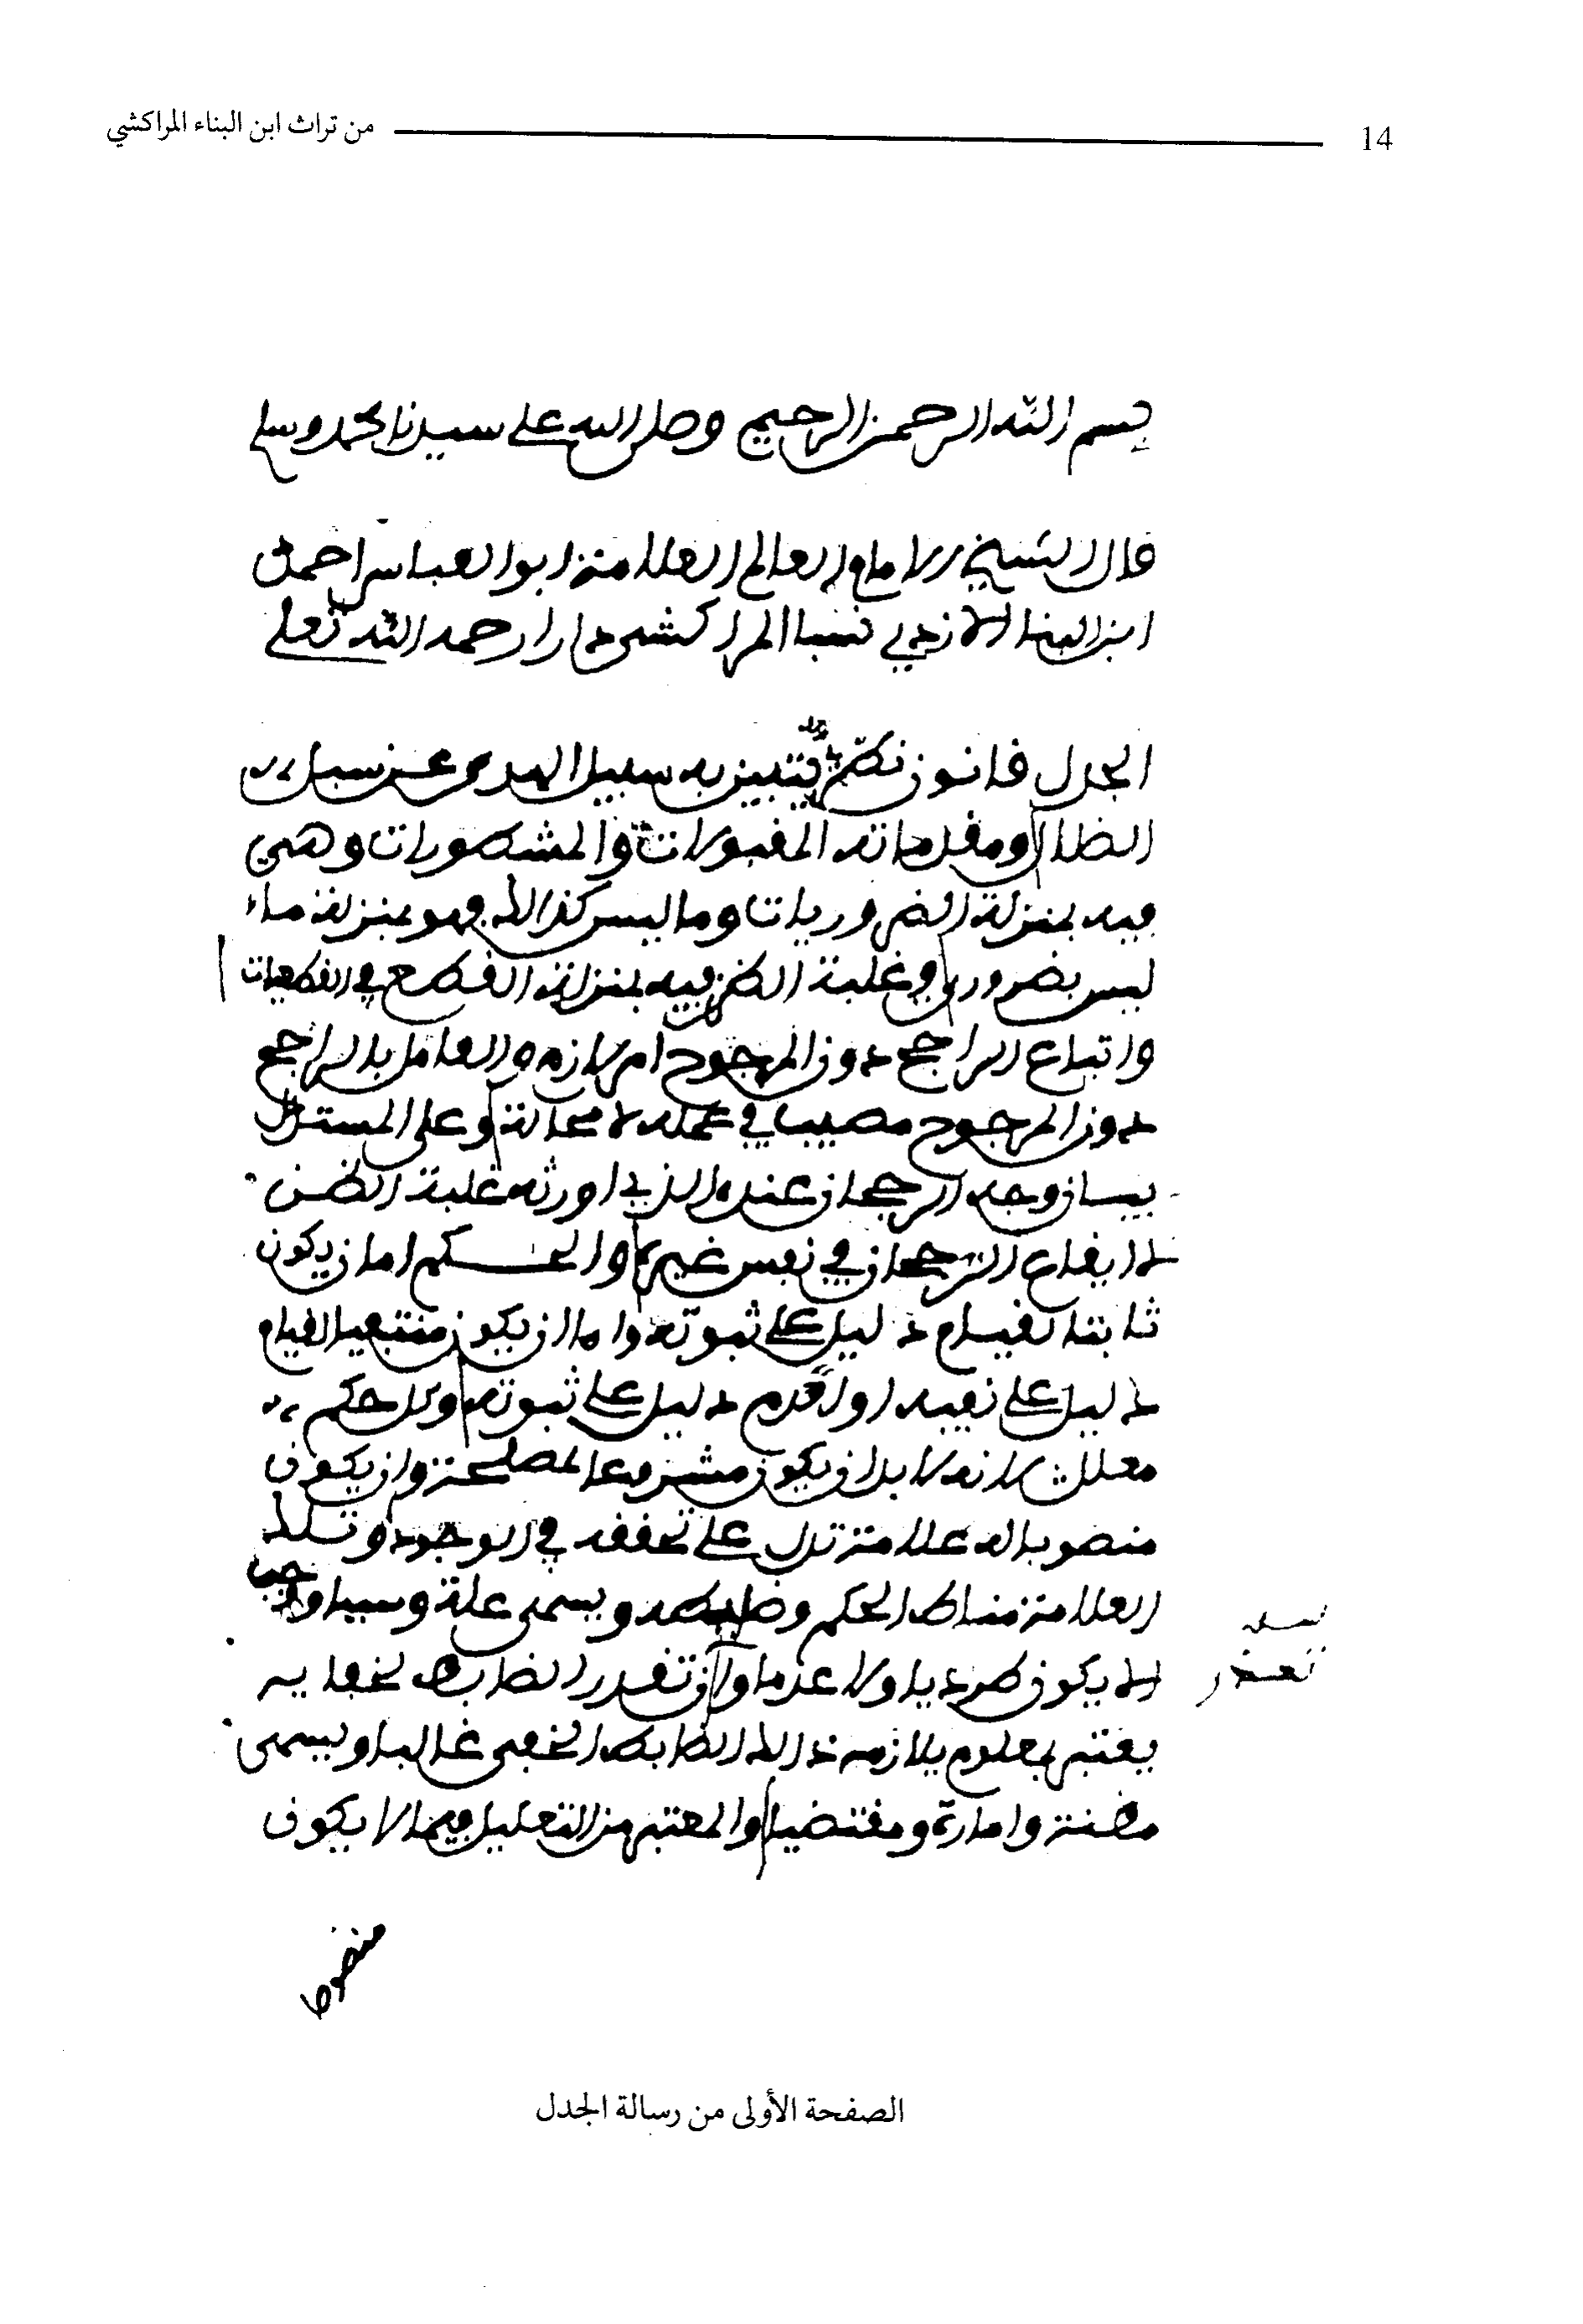 14 من تراث ابن البناء المراكشي
بسم الله الرحمن الرحيم وصلى الله على سيدنا محمد وسلم
قال الشيخ الامام العالم العلامة ابو العباس احمد
ابن البنا الازدي نسبا المراكشي دارا رحمه الله تعلى
الجدل قانون نظر يتبين به سبيل الهدى عن سبل
الضلال ومقدماته المقبولات والمشهورات وهي
فيه بمنزلة الضروريات وما ليس كذالك فهو بمنزلة ما
ليس بضروري وغلبة الظن فيه بمنزلة القطع في القطعيات
واتباع الراجح دون المرجوح امر لازم والعامل بالراجح
دون المرجوح مصيب في عمله لا محالة وعلى المستدل
بيان وجه الرجحان عنده الذي اورثه غلبة الظن
لا ايقاع الرجحان في نفس غيره والحكم اما ان يكون
ثابتا لقيام دليل على ثبوته واما ان يكون منتفيا لقيام
دليل على نفيه او لعدم دليل على ثبوته وكل حكم
معلل لانه لابد ان يكون مشروعا لمصلحة وان يكون
منصوبا له علامة تدل على تحققه في الوجود وتلك
العلامة مناط الحكم وضابطه ويسمى علة وسببا
الا يكون طرديا ولا عدما وان تعذر الضابط لخفايه
تعذر
يعتبر بمعلوم يلازمه ذالك الضابط الخفي غالبا ويسمى
مظنة وامارة ومقتضيا والمعتبر من التعليل فيما لا يكون
الصفحة الأولى من رسالة الجدل